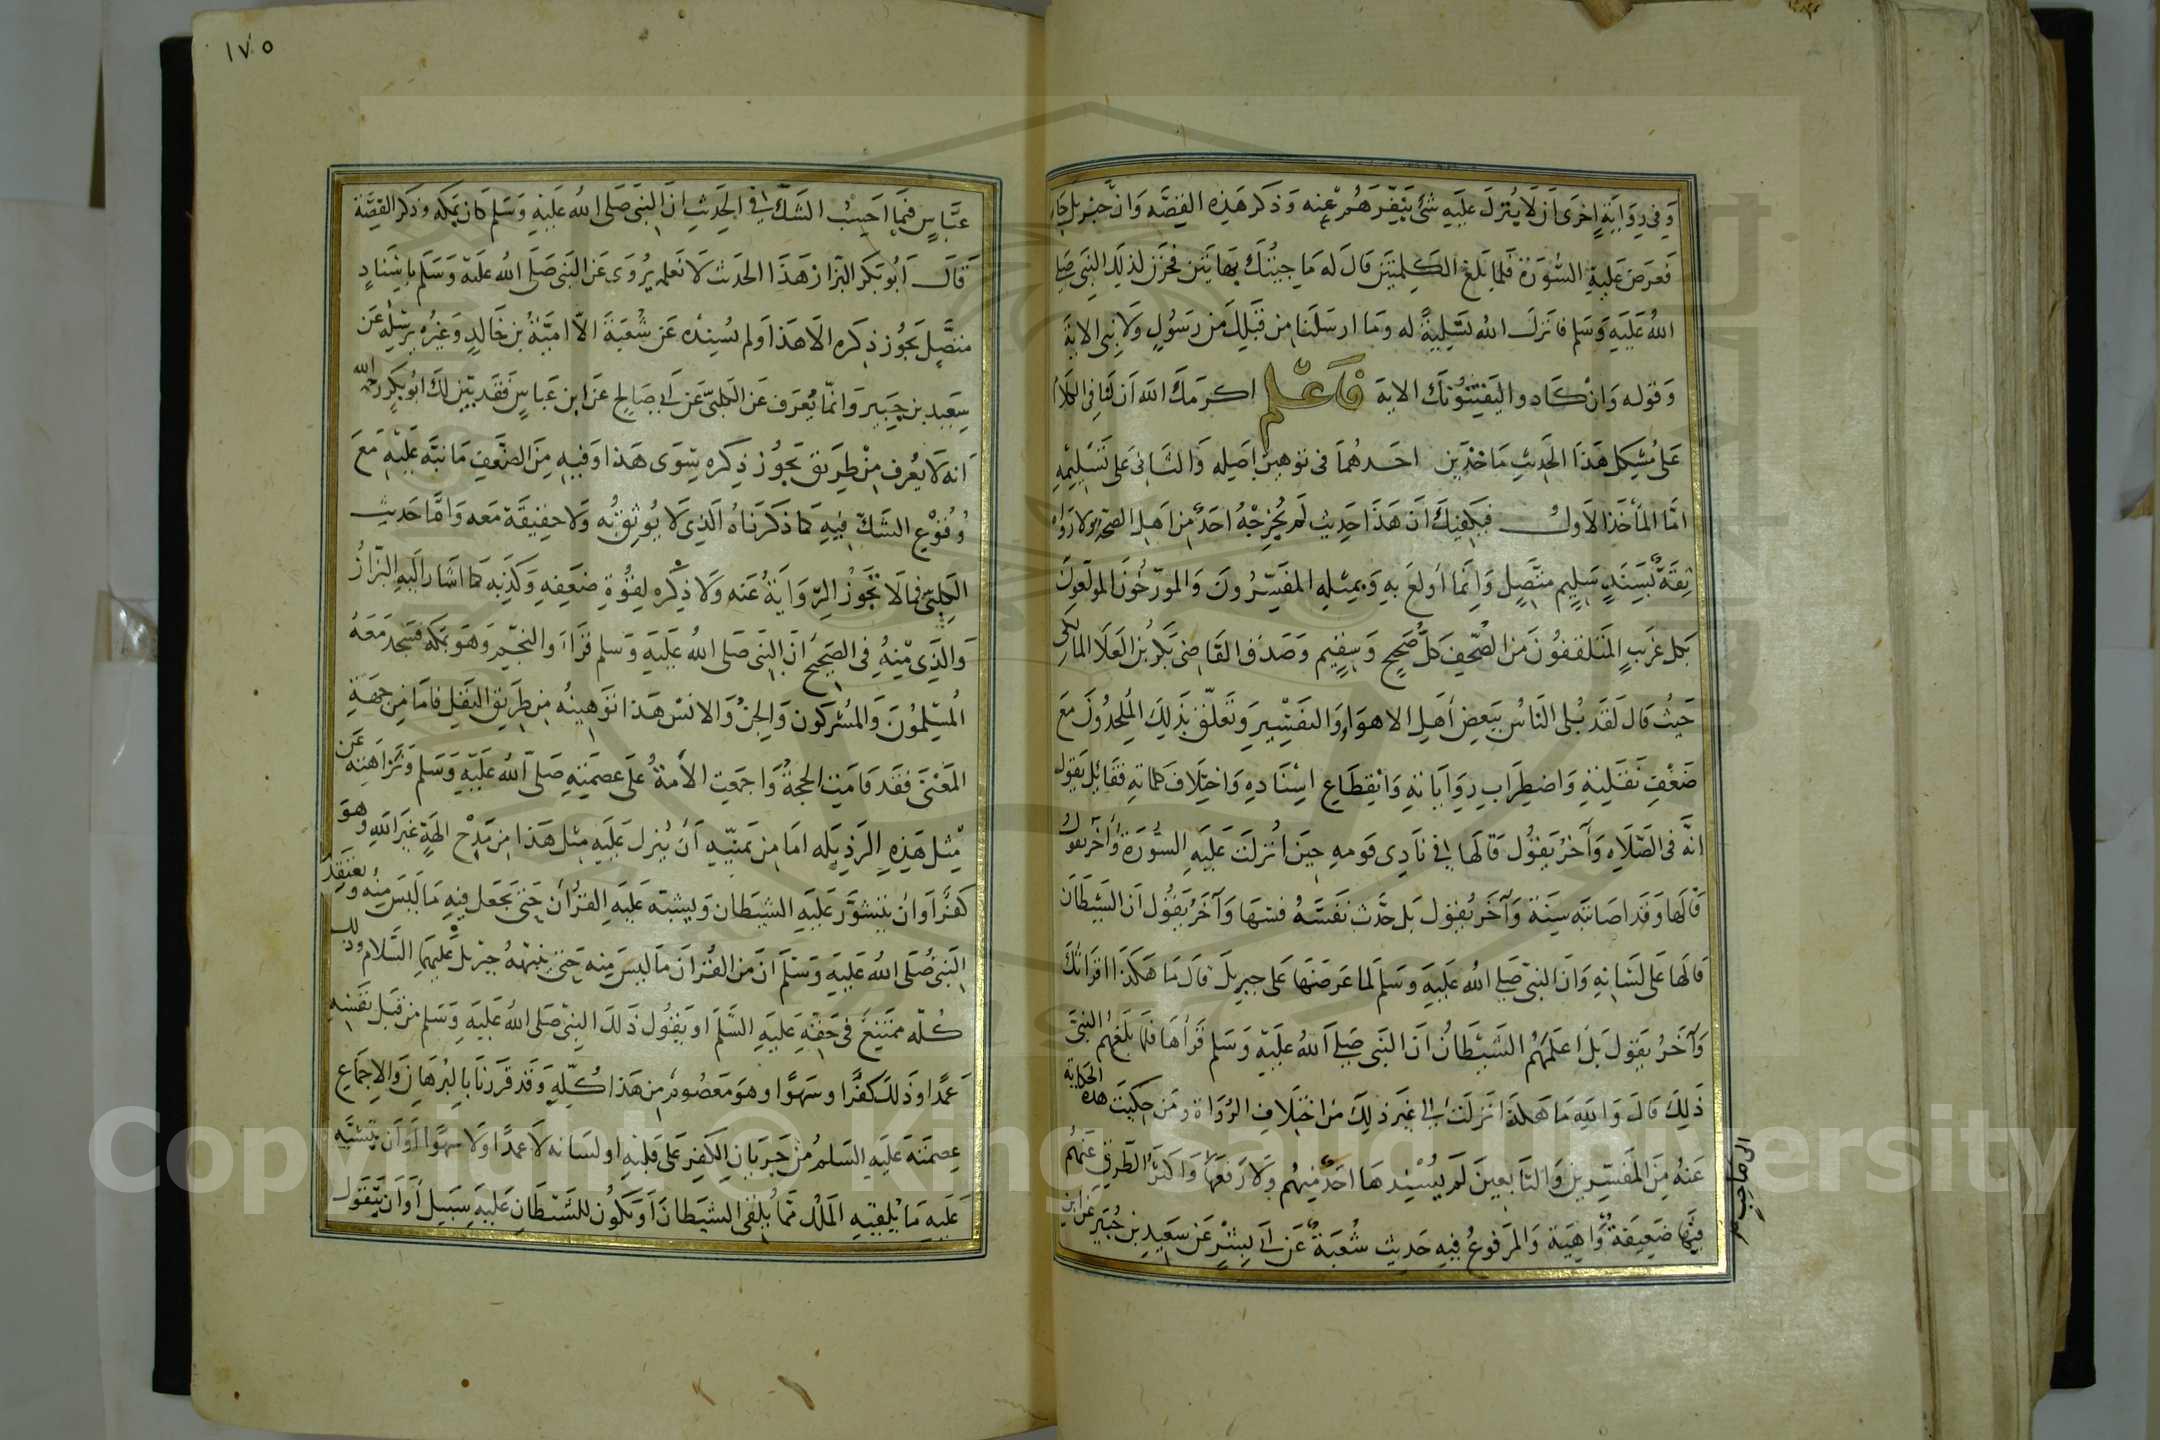 وَفِى رِوَايَةٍ اخرَى اَن لَا يُنزلَ عَلَيهِ شئ يُنَفِّرهُم عنه وَذكَر هَذِه القِصَّه وَانَّ جبريل جا
فَعرَض عَليهِ السُّورَة فَلمَّا بَلغ الكَلِمتَين قالَ لَه مَا جيتُكَ بِهَاتَين فَحَزِن لذلِكَ النبى صلى
اللهُ عَلَيه وَسَلم فانزلَ الله تَسْلِيَةً له وما ارسَلنا مِن قَبلِكَ مِن رَسُولٍ وَلَا نبى الاية
وَقوله وَانْ كَادوا ليَفتِنُونَكَ الاية فَاعْلم اكرَمَكَ الله اَن لنا فى الكلام
عَلى مُشكِل هَذَا الحَديثِ مَاخذَين احَدهُما فى توهين اَصلِه وَالثانى عَلى تَسْلِيمه
امَّا المأخَذ الاول فَيَكفيكَ اَن هَذَا حَديث لَم يُخرجْهُ احَدٌ مِن اَهل الصحة ولا رَواه
ثِقَةٌ بسَنَدٍ سَلِيم متّصِلٍ وَانَّما اُولعَ بهِ وَبمثلِه المفَسّرُونَ وَالمورّخُونَ المولَعونَ
بكل غَريبٍ المتَلقفُونَ مَن الصُّحفِ كلَّ صَحِيح وَسَقيم وَصَدَق القَاضِى بَكر بن العَلَا المالكى
حَيثُ قال لَقَد بُلى النَاسُ ببَعضِ اَهلِ الاهوَاء وَالتفسِيرِ وَتَعلّق بذَلِكَ المُلحدُونَ مَعَ
ضَعْفِ نَقَلَتِهِ وَاضطِرَابِ رِوَايَاتهِ وَانقِطَاعِ اِسْنَادِهِ وَاختِلَافَ كلماتهِ فقائل يَقول
انَّه فى الصَّلَاةِ وَآخَرُ يَقُول قَالَهَا فى نَادِى قَومهِ حِينَ اُنزلَت عَلَيهِ السُّورَة وَآخرُ يقول
قَالَهَا وَقد اصَابَته سِنَة وَآخَر يَقول بَل حدَّث نَفسَهُ فسَهَا وَآخَرُ يَقُول انَّ الشيطَان
قالَها عَلى لسَانِهِ وَانَ النبىّ صَلى الله عَلَيهِ وَسَلّم لما عَرَضَهَا عَلى جبريلَ قالَ مَا هَكَذا اقرَاتُكَ
وَآخَرُ يَقولَ بَل اَعلمَهُم الشَيْطَانُ انَ النَبى صَلى اَللهُ عَلَيهِ وَسَلم قَرأها فلمّا بَلغ النبىّ
ذَلِكَ قالَ وَاللهِ ما هكذَا انزلَت الى غير ذلِكَ من اختلافِ الرُّوَاة ومَن حكيَت هذه الحكاية
عَنهُ مِنَ المفَسّرِينَ وَالتَّابعِينَ لَم يُسْنِدهَا احَدٌ مِنهُم وَلا رَفعَهَا وَاكثرُ الطرق عَنهُم
الى صاحب
فيهَا ضَعِيفَةٌ وَاهِيَة وَالمرفوعُ فيهِ حَديث شُعبَة عَن اَبى بِشْرٍ عَن سَعيدِ بن جُبَيرٍ عَن ابن
١٧٥
عبَّاسٍ فيمَا احسِبُ الشَكَّ فى الحَديثِ انَ النبى صَلى اللهُ عَليهِ وَسَلم كان بمكه وذكر القصّة
قَالَ اَبُو بَكر البَزار هَذا الحَديث لَا نَعلمه يُروَى عَن النبى صَلى الله عَلَيه وَسَلم باسْنادٍ
متصّلٍ يَجُوز ذِكره الَا هَذا وَلم يُسنِده عَن شُعبَة الَّا اميَّة بن خَالدٍ وَغيرُه يرسِله عَن
سَعيدِ بن جُبَير وَانّما يُعرَف عَن الكلبىّ عَن اَبى صَالحٍ عَن ابن عَباسٍ فقد بيّن لكَ ابُو بَكرٍ رحمه الله
اَنه لا يُعرف مِن طرِيق يجُوز ذِكره سِوَى هَذا وَفيهِ مِنَ الضَّعفِ مَا نبَّه عَلَيْهِ مَعَ
وُقُوع الشَكّ فيهِ كَما ذَكرنَاهُ الذى لا يُوثقُ به وَلا حقيقَة مَعه وَامَّا حَديث
الكَلبىّ فَما لَا تَجُوز الرّوَايَة عَنه وَلا ذِكره لقُوَّةِ ضعَفِهِ وَكذِبِه كما اشَار اليهِ البزار
وَالذى مِنهُ فى الصحيح اَنّ النَّبى صَلى الله عَلَيهِ وَسَلم قَرَأ وَالنجْم وَهوَ بمكه فسَجدَ مَعَهُ
المُسْلِمُونَ وَالمُشرِكون وَالجنّ وَالانس هَذا توَهينُه مِن طَريق النَّقل فاما مِن جهَةِ
المَعْنَى فقَد قَامَت الحجةُ وَاجمَعتِ الاُمة عَلى عصمَتهِ صَلى الله عَليهِ وَسَلم وَنَزاهَته عَن
مِثل هَذِهِ الرَذِيلَه امَا مِن تمَنّيهِ اَن يُنزل عَلَيهِ مِثل هَذا مِن مَدْح الهةٍ غَيرَ اللهِ وَهوَ
كفرٌ اَوان يتَسَوّر عَلَيهِ الشيطَان وَيشبّه عَلَيهِ القرُآن حَتى يَجعَل فيهِ مَا لَيسَ مِنهُ ويَعتَقِد
النبىّ صَلى اللهُ عَليهِ وَسَلّمَ انّ مَن القُرآن مَا ليسَ مِنه حَتى ينبّههُ جبريل عَليهمَا السَّلام وذلك
كُله ممتَنعٌ فى حَقّهِ عَليهِ السَّلم او يَقُول ذَلكَ النبىّ صَلى اللهُ عَلَيهِ وَسَلم من قبَل نَفسِهِ
عَمدًا وَذلكَ كفرٌ اوسَهوًا وهوَ مَعصُومٌ مِن هَذا كُلّهِ وَقد قَررنَا بالبُرهَانِ وَالاِجمَاعِ
عِصمَتَه عَليهِ السَلم مِن جَرَيانِ الكفرِ عَلى قلبِهِ او لسَانه لَا عمدًا وَلَا سَهوًا اَو اَن يتشبّه
عَلَيهِ مَا يُلقيهِ الملَك ممّا يُلقى الشيطَان اَو يَكُون للشّيطَانِ عَليهِ سَبيل اَو اَن يَتَقوّل
Copyright © King Saud University